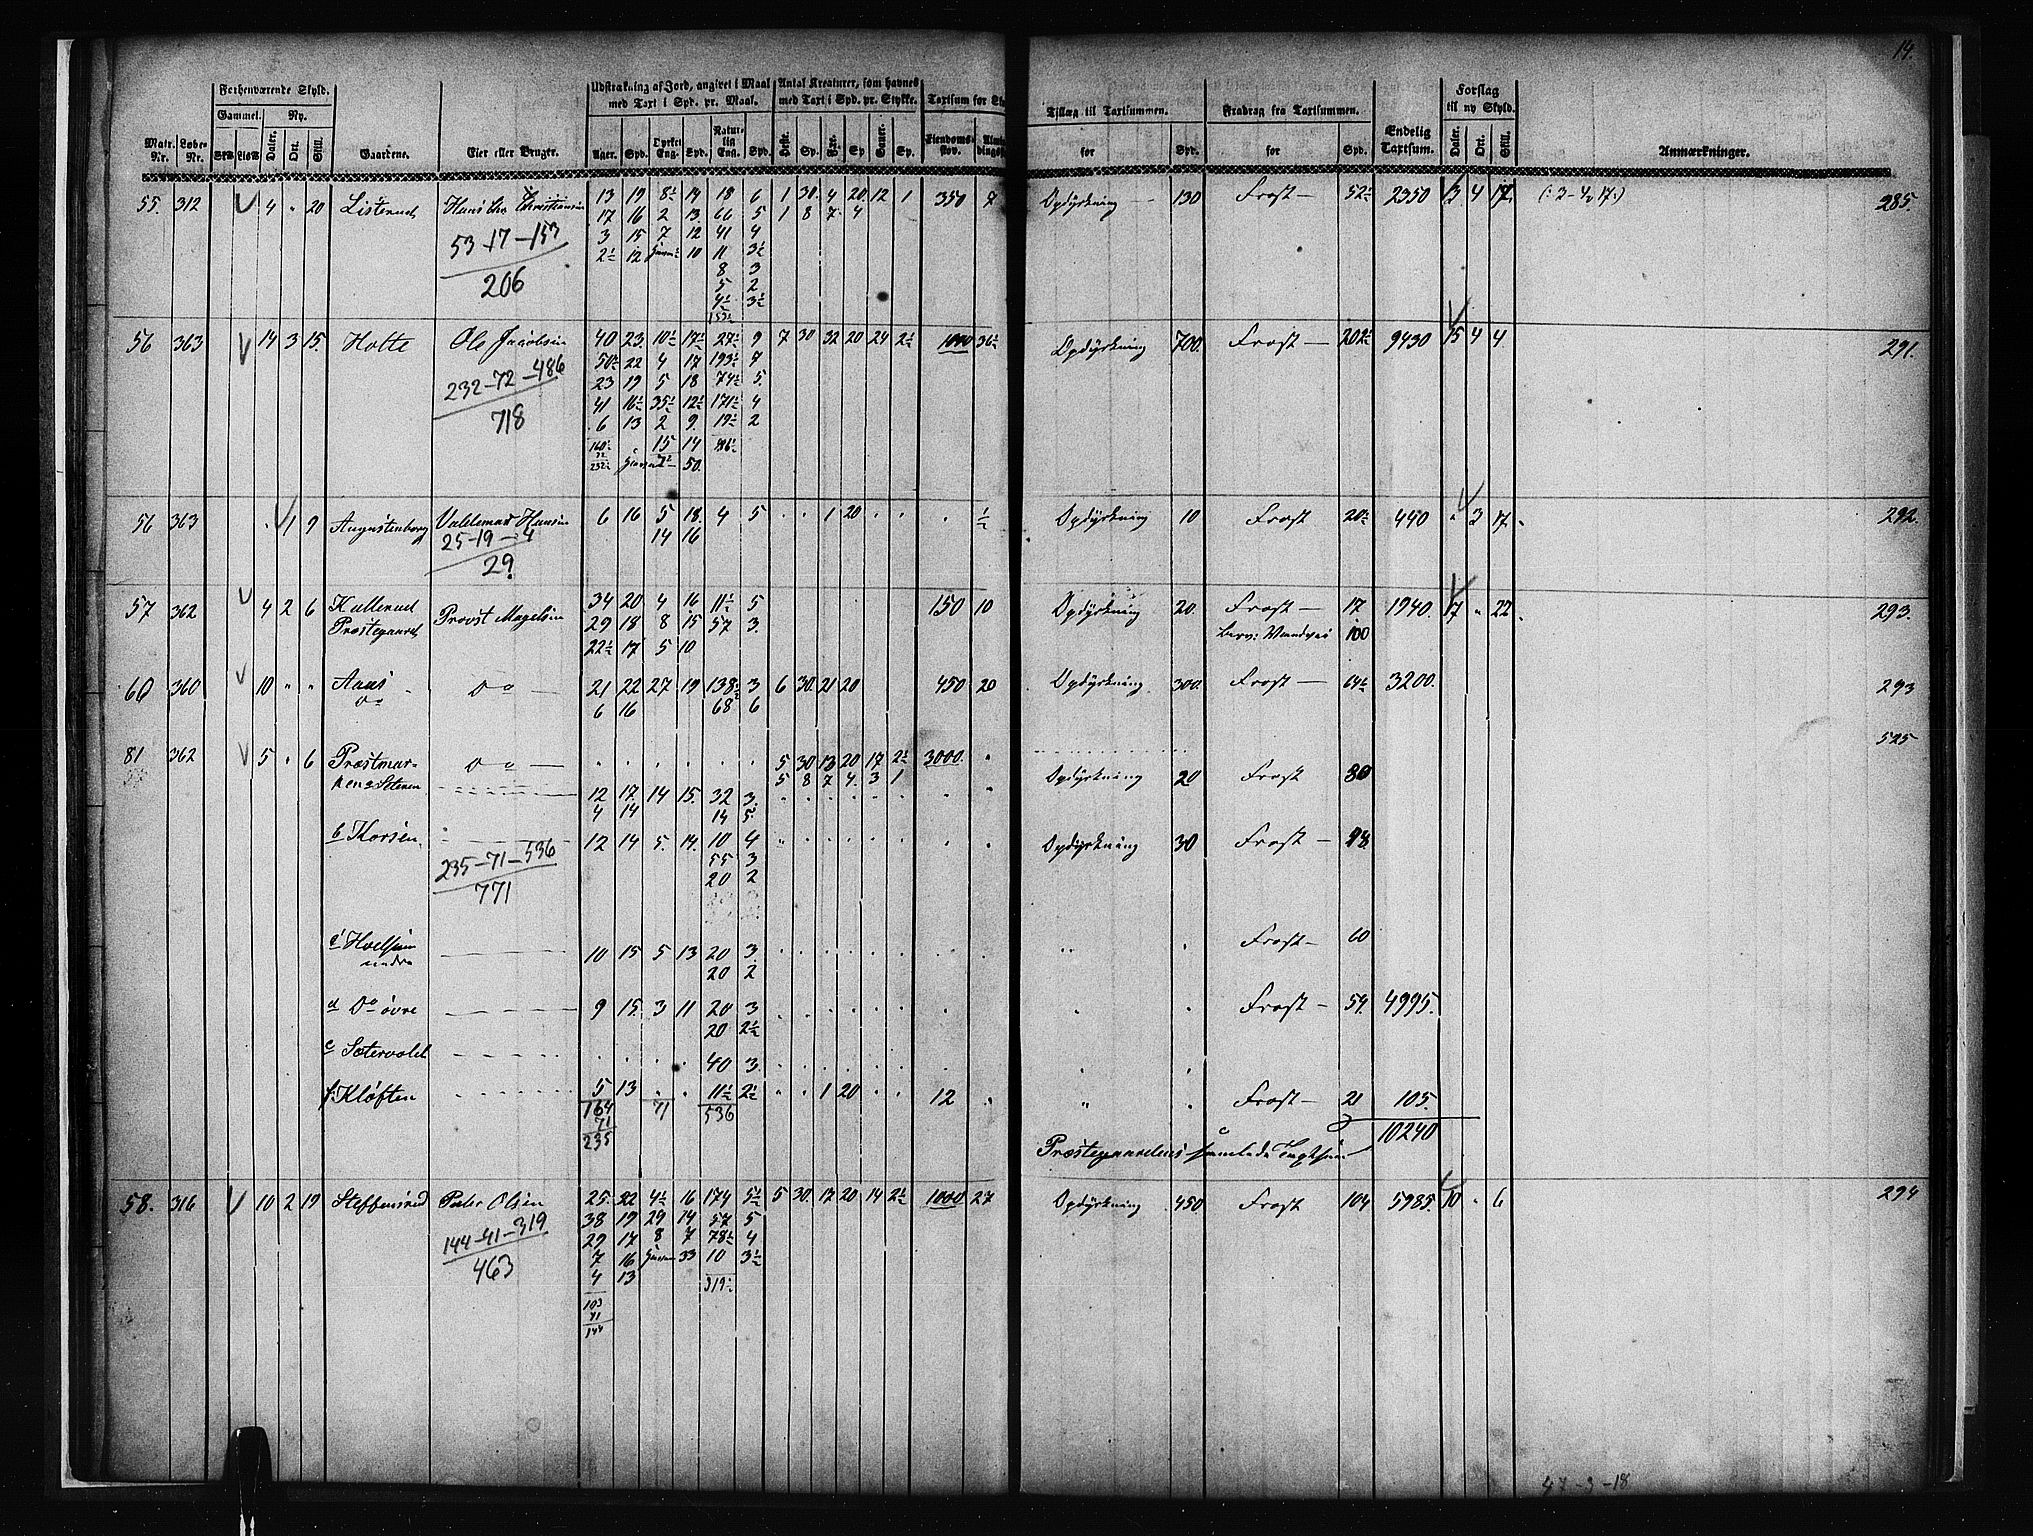 14.
Forhenværende Skyld.
Udstrækning af Jord, angivet i Maal med Taxt i Spd. pr. Maal.
Antal Kreaturer, som havnes med Taxt i Spd. pr. Stykke.
Taxtsum for
Tillæg til Taxtsummen.
Fradrag fra Taxtsummen.
Endelig Taxtsum.
Forslag til ny Skyld.
Gammel. Ny.
Matr. Nr. Løbe-Nr. Daler. Ort. Skill. Gaardene. Eier eller Bruger. Ager. Spd. Dyrket Eng. Spd. Naturlig Eng. Spd. Heste. Sp. Sp. Sp. Eiendoms-skov. for Spd. for Spd. Daler. Ort. Skill. Anmærkninger.
55. 312 4 " 20 Listerud Hans Chr Christiansen 13 19 8½ 14 18 6 1 30. 4 20. 12 1 350 7 Opdyrkning 130 Frost 52½ 2350 3 4 17. (: 3-4-17.) 285.
17 16 2 13. 66 5 1 8 7 4
53-17-153 3 15 7 12 41 4
2½ 12 10 11 3½
206 8 3
5 2
4½ 3½
153½
56 363 14 3 15. Holte Ole Jacobsen 40 23. 10½ 17½ 27½ 9 7 30 32 20 24 2½ 1000 36½ Opdyrkning 700. Frost 202½ 9430 15 4 4. 291.
50½ 22 4 17 193½ 7
232-72-486 23 19 5 18 74½ 5.
41 16½ 35½ 12½ 171½ 4
718 6 13 2 9. 19½ 2
15 14
50.
56 363 1 9 Augustenborg Valdemar Hansen 6 16 5 18. 4 5 1 20 ½ Opdyrkning 10 Frost 20½ 440 " 3 17 292.
25-19-4 14 16
29.
57 362 4 2 6 Kullerud Præstegaard Provst Magelsen 34 20 4 16 11½ 5 150 10 Opdyrkning 20 Frost 17 1940. 17 " 22 293.
29 18 8 15 57 3. 100
22½ 17 5 10
60 360 10 " " Aas Do 21 22 27 19 138½ 3 6 30. 21 20 450 20 Opdyrkning 300. Frost 64½ 3200. 293
6 16 68 6
525
81 362 5 " 6 Præstmarkens Seteren Do 5 30 13 20 17 2½ 3000.
5 8 7 4. 3 1 Opdyrkning 20 Frost 80
12 17. 14 15. 32 3.
4 14 14 5
b Korsen 12 14 5. 14. 10 4 Opdyrkning 30 Frost 98.
235-71-536 55 3
771 20 2
c Hvelsven nedre 10 15 5 13 20 3. Frost 60
20 2
d Do øvre 9 15. 3 11 20 3 Frost 54. 4995.
20 2½
e Sætervold 40 3.
f. Kløften 5 13 11½ 2½ 1 20 12 Frost 21 105.
164 71 536
71
235 10240
Præstegaardens samlede Taxtsum
58. 316 10 2 19 Steffensrud Peder Olsen 25 22 4½ 16 174 5½ 5 30. 17 20 14 2½ 1000 27 Opdyrkning 450 Frost 104 5985. 10 " 6 294
38 19 29 14 57 5
144-41-319 29 17 8 7 78½ 4
463 7 16 33 10 3½
4 13 319½
103
41
144
47-3-18